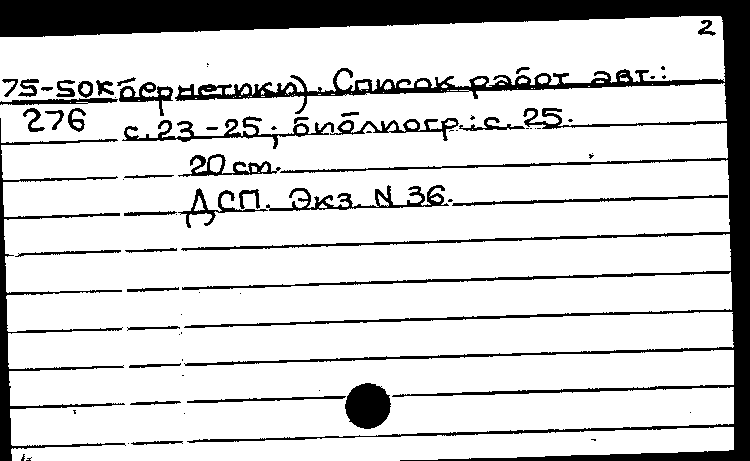 2
75-50к бернетики). Список работ авт.:
276 с. 23-25; библиогр.: с. 25.
20 см.
ДСП. Экз. N 36.